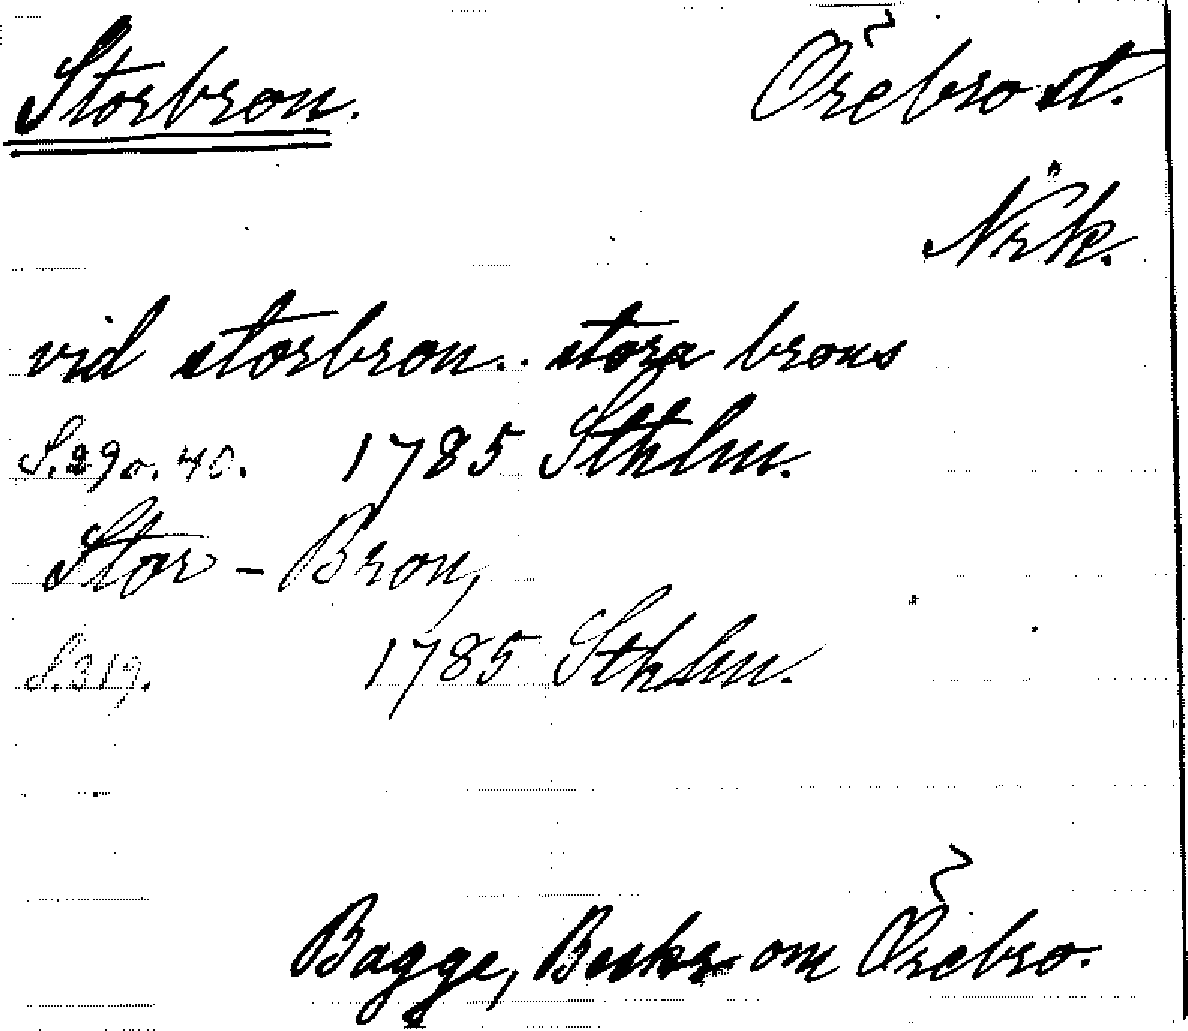 Storbron. Örebro st.
Närk.
vid storbron.. stora brons
S. 29 o. 40. 1785 Sthlm.
Stor-Bron,
S. 319. 1785 Sthlm.
Bagge, Beskr. om Örebro.